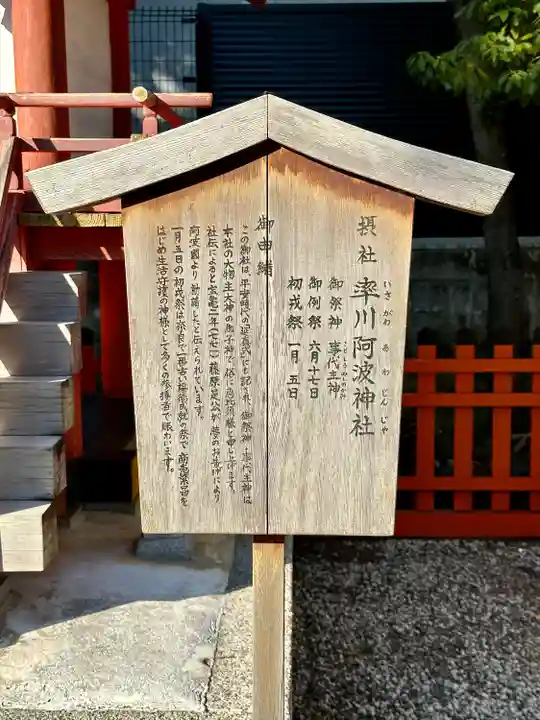 摂社 率川阿波神社
いさがわ あわ じんじゃ
御祭神 事代主神
ことしろぬしのかみ
御例祭 六月十七日
初戎祭 一月五日
御由緒
この御社は、平安時代の延喜式にも記され、御祭神・事代主神は
本社の大物主大神の御子神で、俗に恵比須様と申し上げます。
社伝によると宝亀二年(七七一)藤原是公が、夢のお告げにより
阿波國より勧請したと伝えられています。
一月五日の初戎祭は奈良で一番古い福徳成就の祭で、商売繁昌を
はじめ生活守護の神様として多くの参拝者で賑わいます。